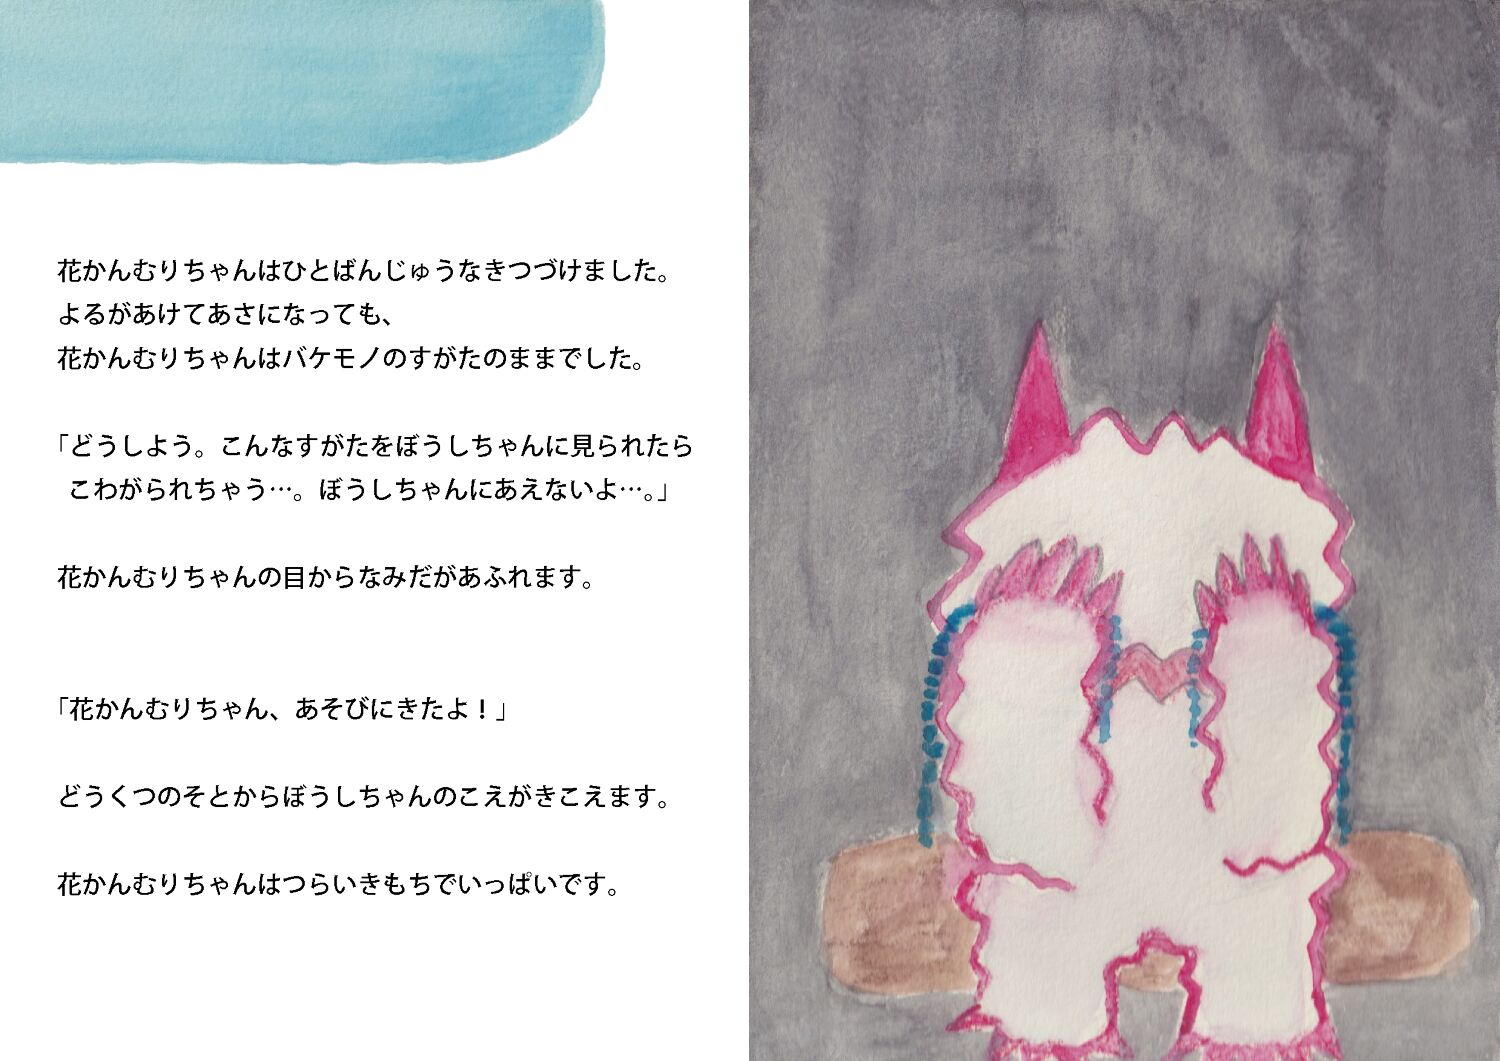 花かんむりちゃんはひとばんじゅうなきつづけました。
よるがあけてあさになっても、
花かんむりちゃんはバケモノのすがたのままでした。
「どうしよう。こんなすがたをぼうしちゃんに見られたら
こわがられちゃう…。ぼうしちゃんにあえないよ…。」
花かんむりちゃんの目からなみだがあふれます。
「花かんむりちゃん、あそびにきたよ！」
どうくつのそとからぼうしちゃんのこえがきこえます。
花かんむりちゃんはつらいきもちでいっぱいです。